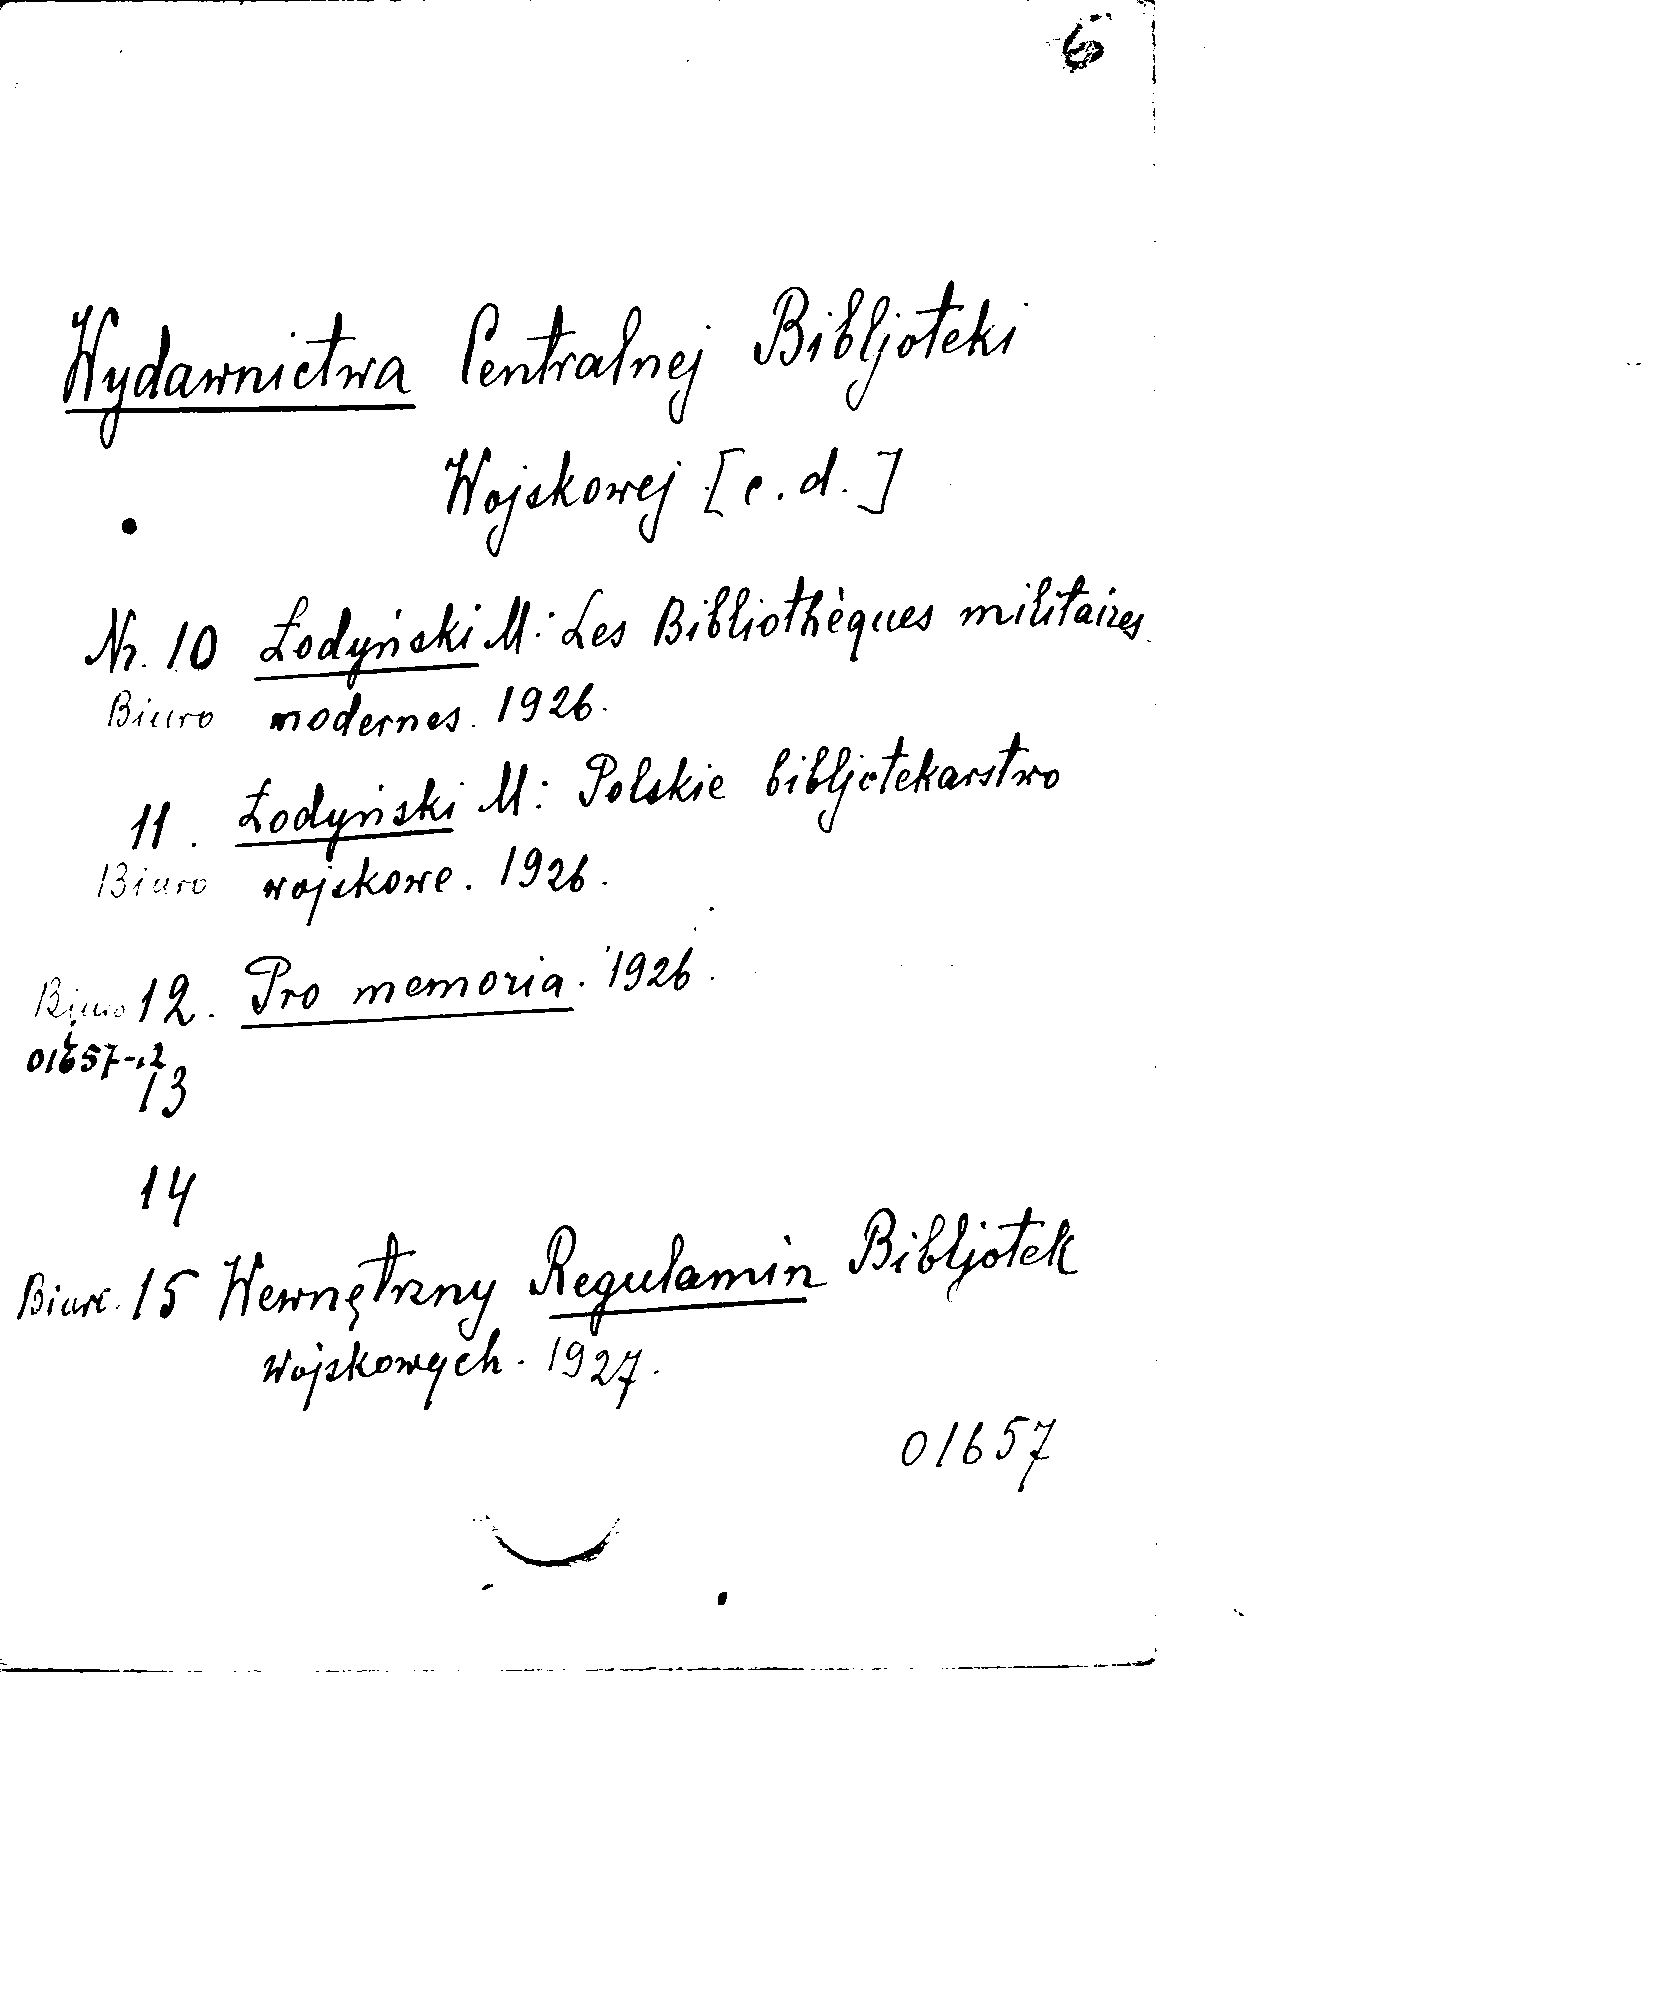 6
Wydawnictwa Centralnej Bibljoteki
Wojskowej [c. d.]
Nr. 10 Łodyński M: Les Bibliothèques militaires
Biuro modernes. 1926.
11. Łodyński M: Polskie bibljotekarstwo
Biuro wojskowe. 1926.
Biuro 12. Pro memoria. 1926.
01657-12
13
14
Biuro 15 Wewnętrzny Regulamin Bibljotek
wojskowych. 1927.
01657